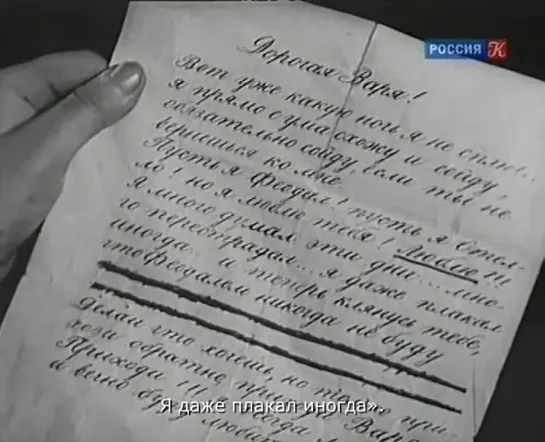 РОССИЯ К
Дорогая Варя!
Вот уже какую ночь я не сплю...
я прямо с ума схожу и сойду!
обязательно сойду, если ты не
вернешься ко мне.
Пусть я феодал! пусть я Отел-
ло! но я люблю тебя! люблю!!!
Я много думал эти дни... мно-
го перестрадал... я даже плакал
иногда и теперь клянусь тебе,
что феодалом никогда не буду
Делай что хочешь, но только при-
ходи обратно,
Приходи!!!
и вечно буду
Я даже плакал иногда».